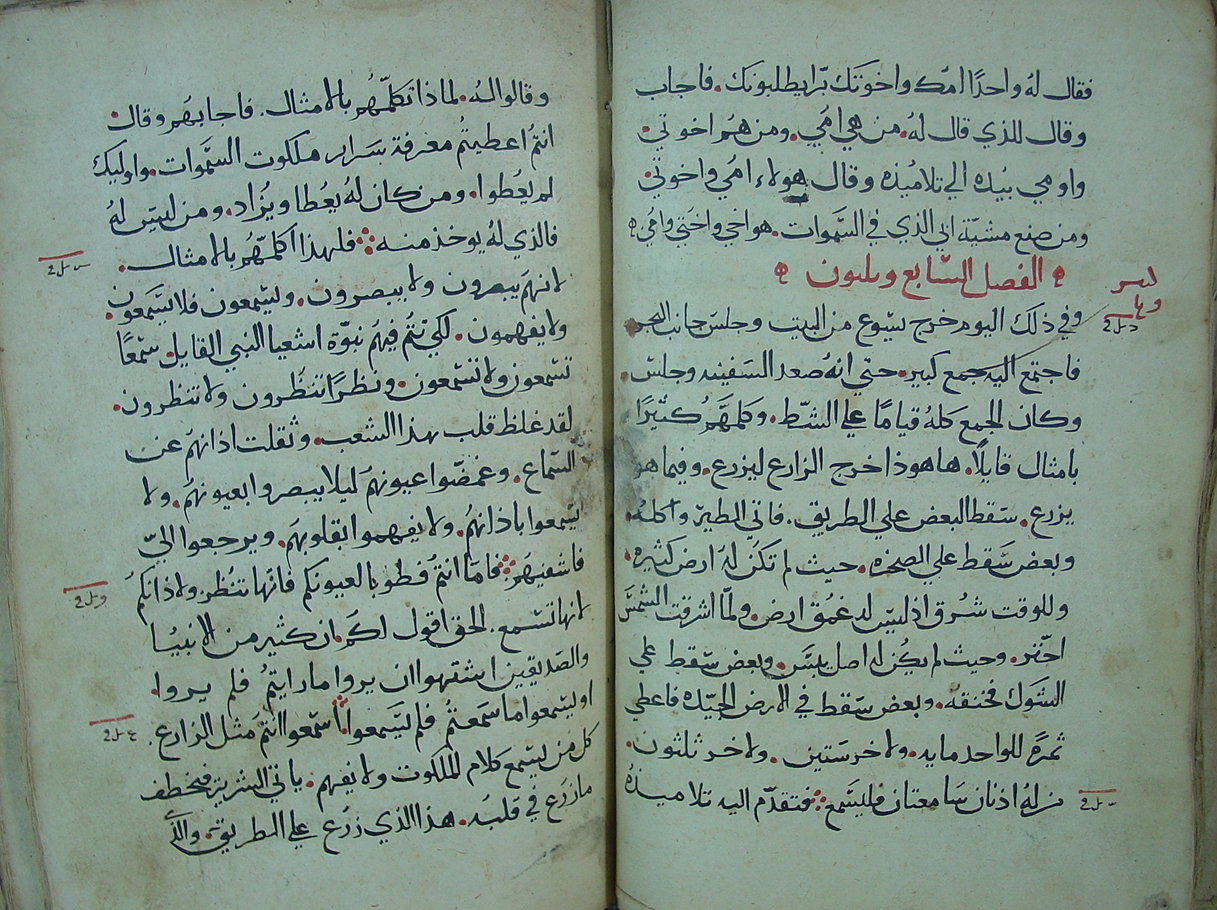 فقال له واحدًا امك واخوتك برّا يطلبونك. فاجاب
وقال للذي قال له. من هي امي. ومن هم اخوتي.
واومي بيده الي تلاميذه وقال هولاء امي واخوتي.
ومن صنع مشيّة ابي الذي في السَّموات. هو اخي واختي وامي
الفصل السّابع وتلتون
وفي ذلك اليوم خرج يسوع من البيت وجلس جانب البحر
فاجتمع اليه جمع كبير. حتي انه صعد السَفينه وجلس.
وكان الجمع كله قيامًا علي الشّط. وكلمهَم كثيرًا
بامثال قايلًا. هاهوذا خرج الزارع ليزرع. وفيما هو
يزرع. سَقط البعض علي الطريق. فاتي الطير واكله.
وبعض سَقط علي الصخره. حيث لم تكن له ارض كثيره.
وللوقت شرق اذ ليس له عمق ارض. ولمّا اشرقت الشمسَ
احتر. وحيث لم يكن له اصل يبسَ. وبعض سَقط علي
الشوك فخنقه. وبعض سَقط في الارض الجيّده فاعطي
ثمرة للواحد مايه. ولاخر ستين. ولاخر ثلثون.
من له اذنان سَامعتان فليسَمع فتقدّم اليه تلاميذه
وقالوا له. لماذا تكلّمهُم بالامثال. فاجابهُم وقال
انتم اعطيتُم معرفة سَراير ملكوت السَّموات. واوليك
لم يعُطوا. ومن كان له يعُطا ويُزاد. ومن ليسَ له
فالذي له يوخذ منه فلهذا اكلمّهُم بالامثال.
لانهَم يبصرون ولا يبصرون. وليسَمعون فلا يسَمعون.
ولا يفهمون. لكي تتم فيهُم نبوّة اشعيا النبي القايل. سَمعًا
تسَمعون ولا تسَمعون. ونظرًا تنظَرون ولا تنظرون.
لقد غلظ قلب هذا الشعب. وثقلت اذانهَم عن
السَّماع. وغمضّوا عيونهَم ليلا يبصروا بعيونهَم. ولا
يسَمعوا باذانهُم. ولا يفهموا بقلوبهَم. ويرجعوا اليّ
فاشفيهَم فامّا انتُم فطوبا لعيونكم فانّها تنُظر. ولاذانكُم
لانها تسَمع. الحق اقول لكم. ان كثير من الانبيا
والصديقين اشتهوا ان يروا ما رايتُم فلم يروا.
او ليسَمعوا ما سَمعتُم فلم يسَمعوا اسَمعوا انتُم مثل الزارع.
كل من يسَمع كلام الملكوت ولا يفهم. ياتي الشرير فيخطف
ما زرع في قلبه. هذا الذي زرع علي الطريق. والذي